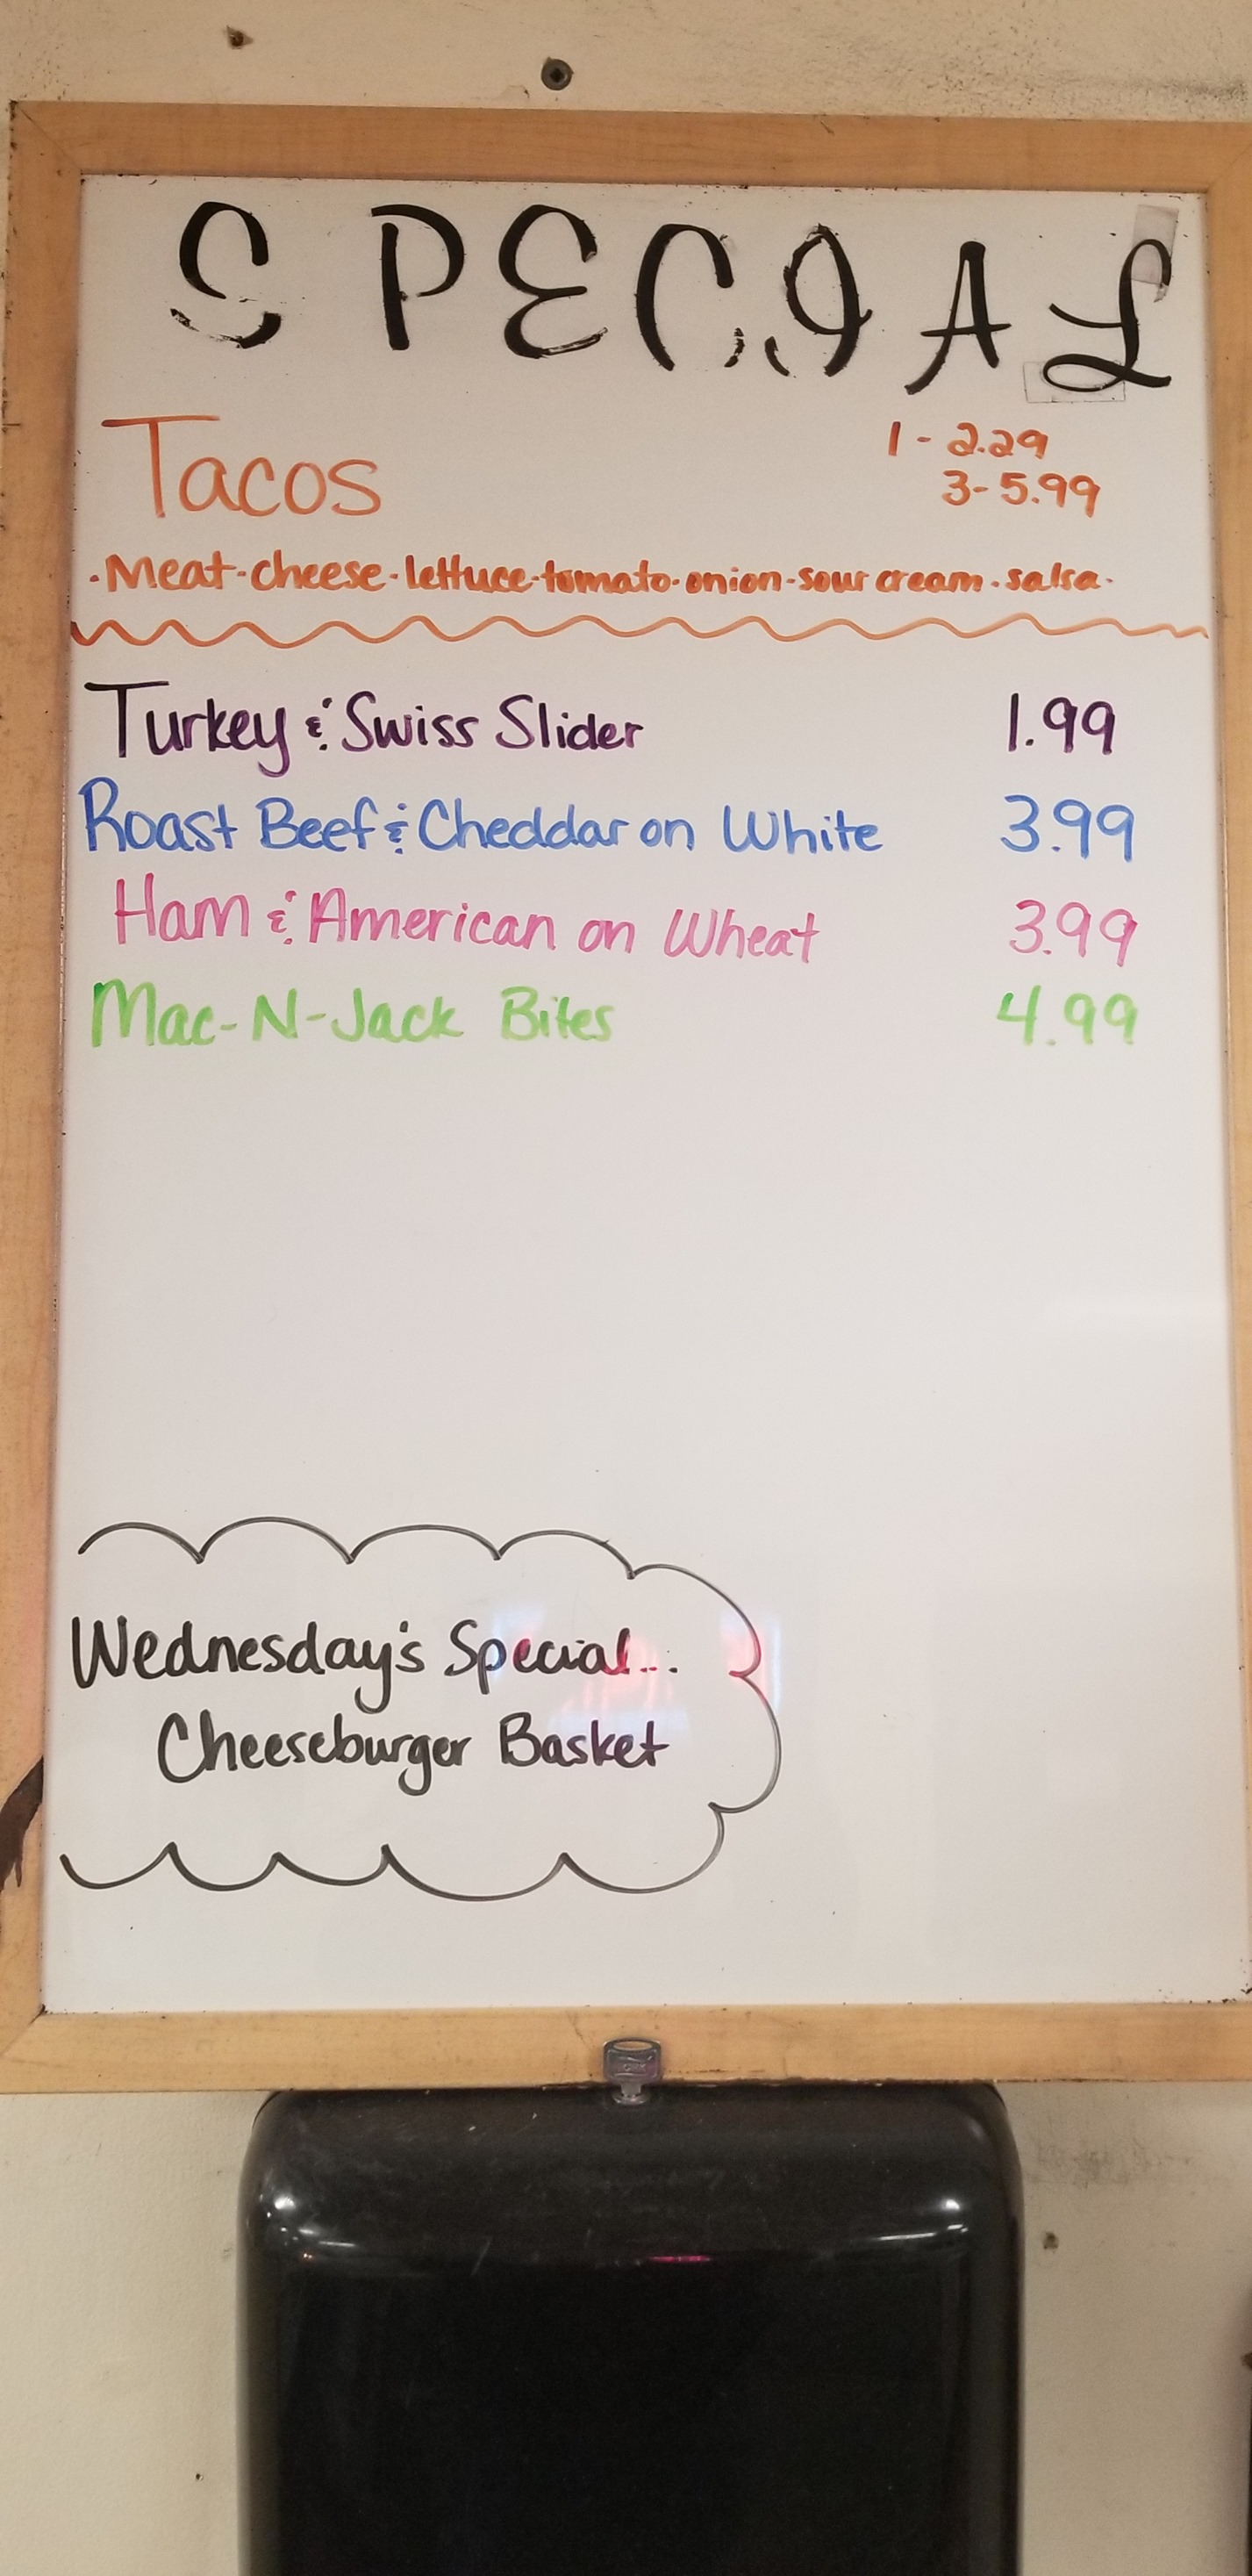 SPECIAL
Tacos
1 - 2.29
3 - 5.99
·Meat·cheese·lettuce·tomato·onion·sour cream·salsa·
Turkey & Swiss Slider 1.99
Roast Beef & Cheddar on White 3.99
Ham & American on Wheat 3.99
Mac-N-Jack Bites 4.99
Wednesday's Special...
Cheeseburger Basket